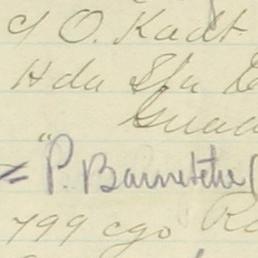 c/ O. Kadt
Hda Sta
Guad
"P. Barneteche (
799 cgo Ro